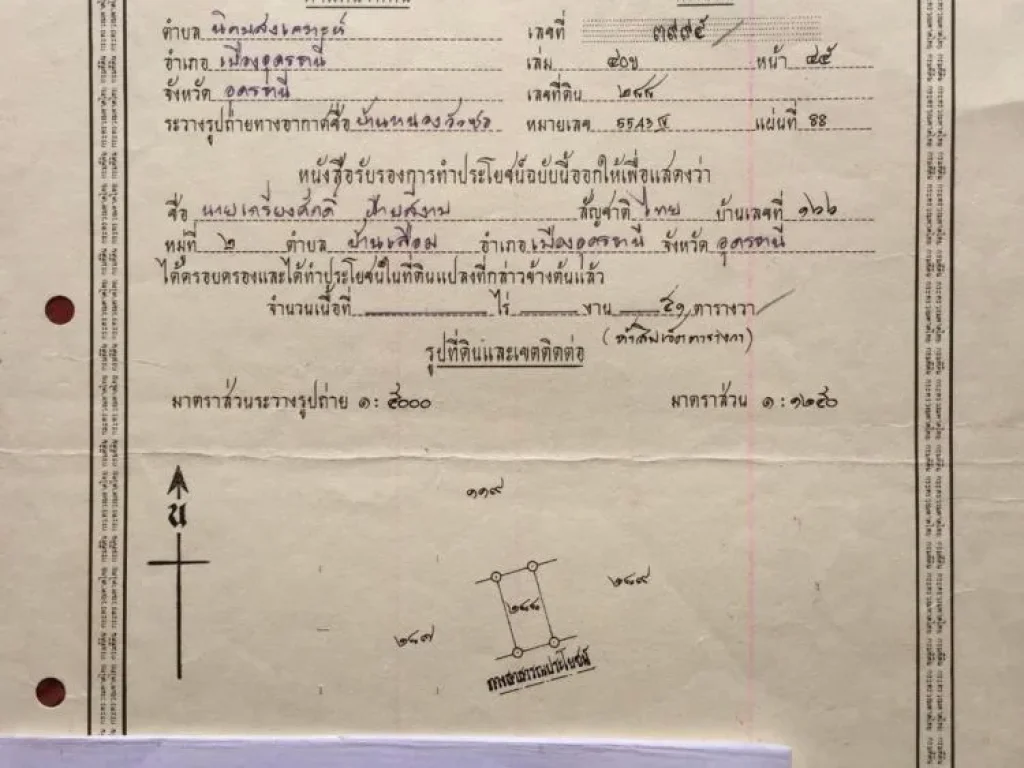 ตำบล นิคมสงเคราะห์ เลขที่ ๓๙๙๕
อำเภอ เมืองอุดรธานี เล่ม ๔๐ข หน้า ๔๕
จังหวัด อุดรธานี เลขที่ดิน ๒๘๘
ระวางรูปถ่ายทางอากาศชื่อ บ้านหนองวัวซอ หมายเลข 5543 IV แผ่นที่ 88
หนังสือรับรองการทำประโยชน์ฉบับนี้ออกให้เพื่อแสดงว่า
ชื่อ นายเกรียงศักดิ์ ฝ้ายสีงาม สัญชาติ ไทย บ้านเลขที่ ๑๖๖
หมู่ที่ ๒ ตำบล บ้านเลื่อม อำเภอ เมืองอุดรธานี จังหวัด อุดรธานี
ได้ครอบครองและได้ทำประโยชน์ในที่ดินแปลงที่กล่าวข้างต้นแล้ว
จำนวนเนื้อที่ ไร่ งาน ๕๑ ตารางวา
(ห้าสิบเอ็ดตารางวา)
รูปที่ดินและเขตติดต่อ
มาตราส่วนระวางรูปถ่าย ๑ : ๕๐๐๐ มาตราส่วน ๑ : ๑๒๕๐
น
๑๑๙
๒๘๙
๒๘๘
๒๘๗
ทางสาธารณประโยชน์